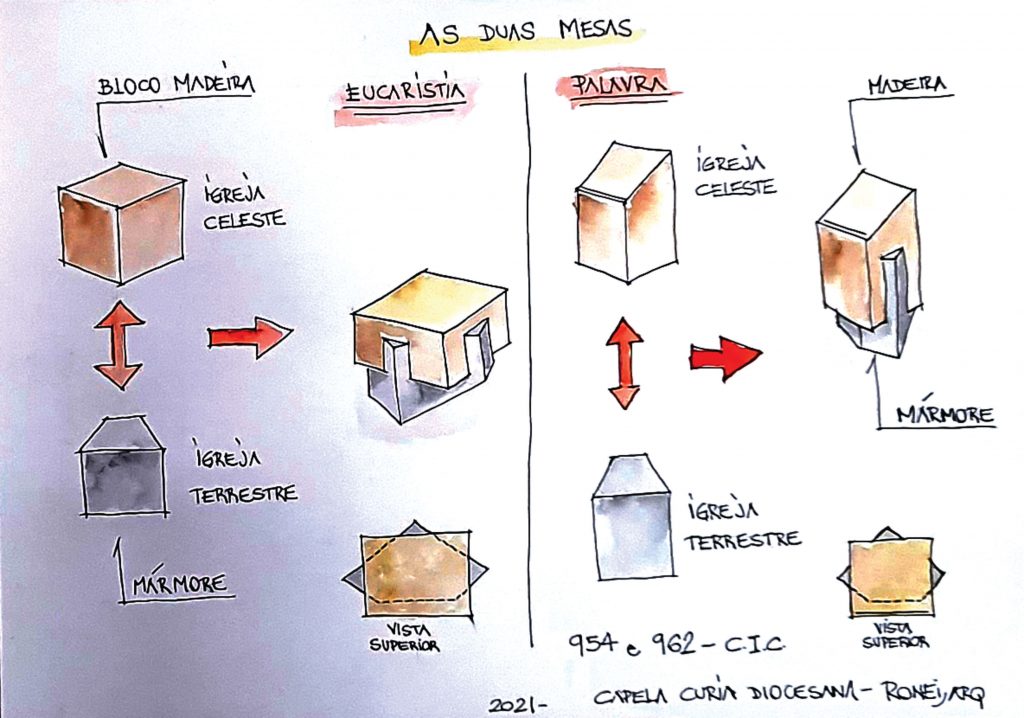 AS DUAS MESAS
BLOCO MADEIRA
EUCARISTIA
IGREJA
CELESTE
IGREJA
TERRESTRE
MÁRMORE
VISTA
SUPERIOR
PALAVRA
MADEIRA
IGREJA
CELESTE
MÁRMORE
IGREJA
TERRESTRE
VISTA
SUPERIOR
954 e 962 - C.I.C.
2021- CAPELA CURIA DIOCESANA - RONEIJARQ